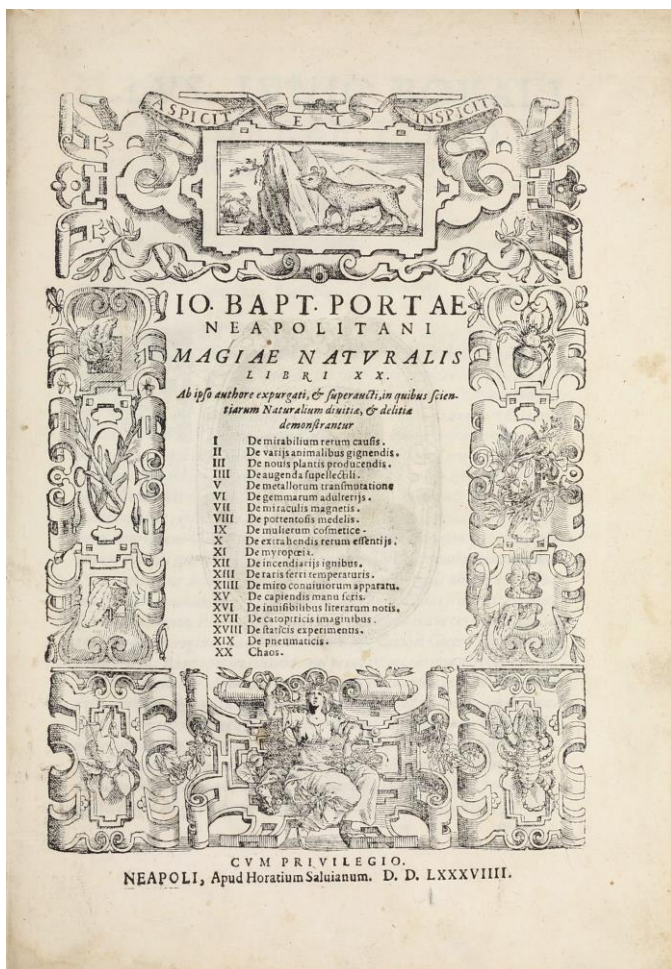 ASPICIT ET INSPICIT
IO. BAPT. PORTAE
NEAPOLITANI
MAGIAE NATVRALIS
LIBRI XX.
Ab ipso authore expurgati, & superaucti, in quibus scien-
tiarum Naturalium diuitiæ, & delitiæ
demonstrantur
I De mirabilium rerum causis.
II De varijs animalibus gignendis.
III De nouis plantis producendis.
IIII De augenda supellectili.
V De metallorum transmutatione
VI De gemmarum adulterijs.
VII De miraculis magnetis.
VIII De portentosis medelis.
IX De mulierum cosmetice.
X De extrahendis rerum essentijs.
XI De myropœia.
XII De incendiarijs ignibus.
XIII De raris ferri temperaturis.
XIIII De miro conuiuiorum apparatu.
XV De capiendis manu feris.
XVI De inuisibilibus literarum notis.
XVII De catoptricis imaginibus.
XVIII De staticis experimentis.
XIX De pneumaticis.
XX Chaos.
CVM PRIVILEGIO.
NEAPOLI, Apud Horatium Saluianum. D. D. LXXXVIIII.